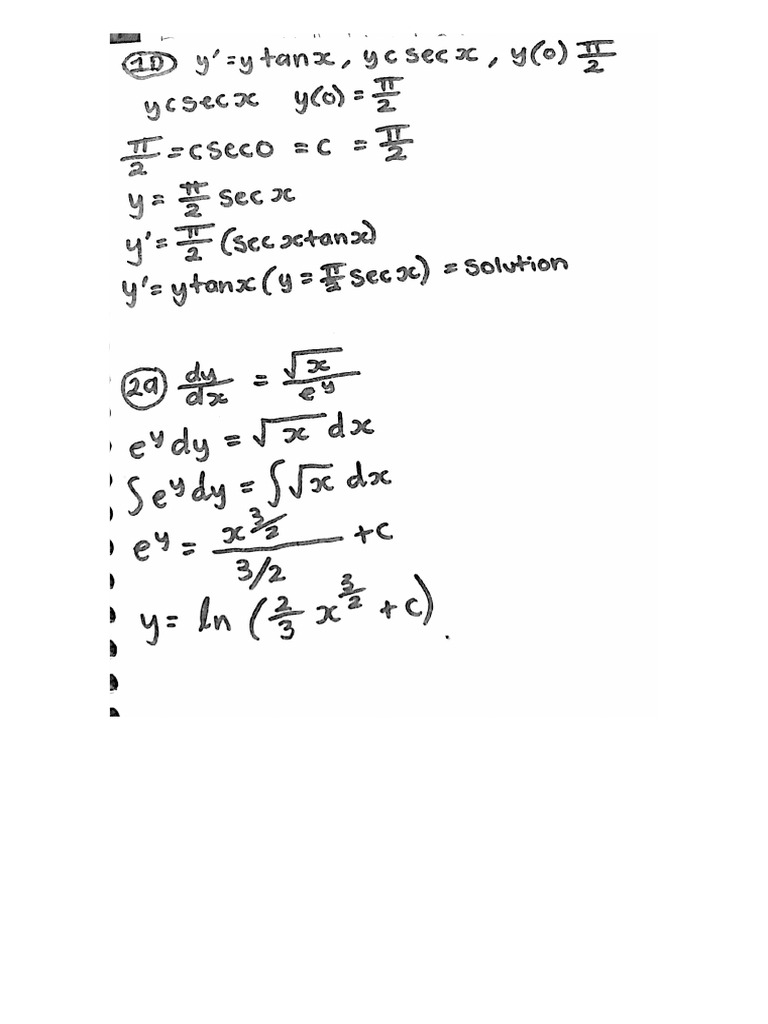 1D y' = y tan x, y c sec x, y(0) π/2
y c sec x y(0) = π/2
π/2 = c sec 0 = c = π/2
y = π/2 sec x
y' = π/2 (sec x tan x)
y' = y tan x (y = π/2 sec x) = solution
2a dy/dx = √x / e^y
e^y dy = √x dx
∫ e^y dy = ∫ √x dx
e^y = x^3/2 / 3/2 + c
y = ln (2/3 x^3/2 + c).